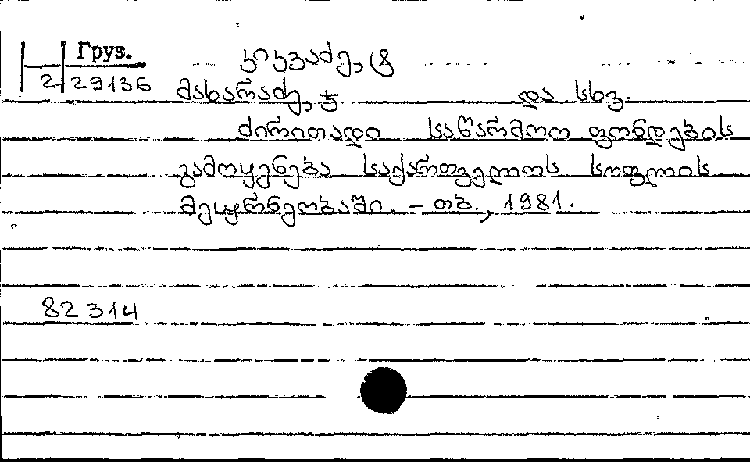 Груз. კიკვაძე, ტ
2 29136 მახარაძე, ჯ და სხვ.
ძირითადი საწარმოო ფონდების
გამოყენება საქართველოს სოფლის
მეურნეობაში. – თბ., 1981.
82314